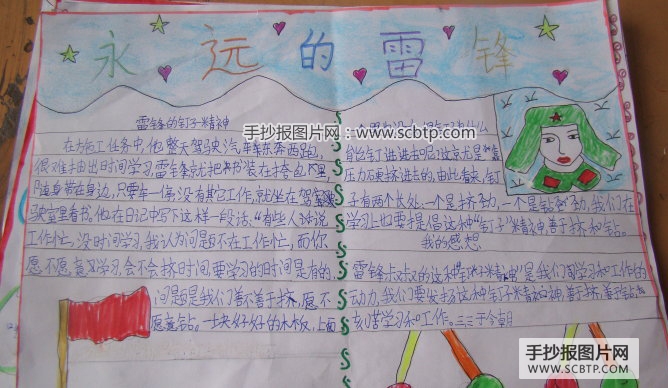 永远的雷锋
雷锋的钉子精神
在施工任务中,他整天驾驶汽车东奔西跑,
很难抽出时间学习,雷锋就把书装在挎包里,
随身带在身边,只要车一停,没有其它工作,就坐在驾
驶室里看书。他在日记中写下这样一段话:"有些人说
工作忙,没时间学习,我认为问题不在工作忙,而你
愿不愿意学习,会不会挤时间,要学习的时间是有的,
问题是我们善不善于挤,愿不
愿意钻。一块好好的木板,上面
一个眼也没有,钉子为什么
能钉进去呢?这就是靠
压力硬挤进去的,由此看来,钉
子有两个长处:一个是挤劲,一个是钻劲,我们在
学习上也要提倡这种"钉子"精神,善于挤和钻。
我的感想
雷锋叔叔的这种"钉子精神"是我们学习和工作的
动力,我们要发扬这种钉子精神,善于挤,善于钻,
刻苦学习和工作。
手抄报图片网:www.scbtp.com
手抄报图片网
WWW.SCBTP.COM